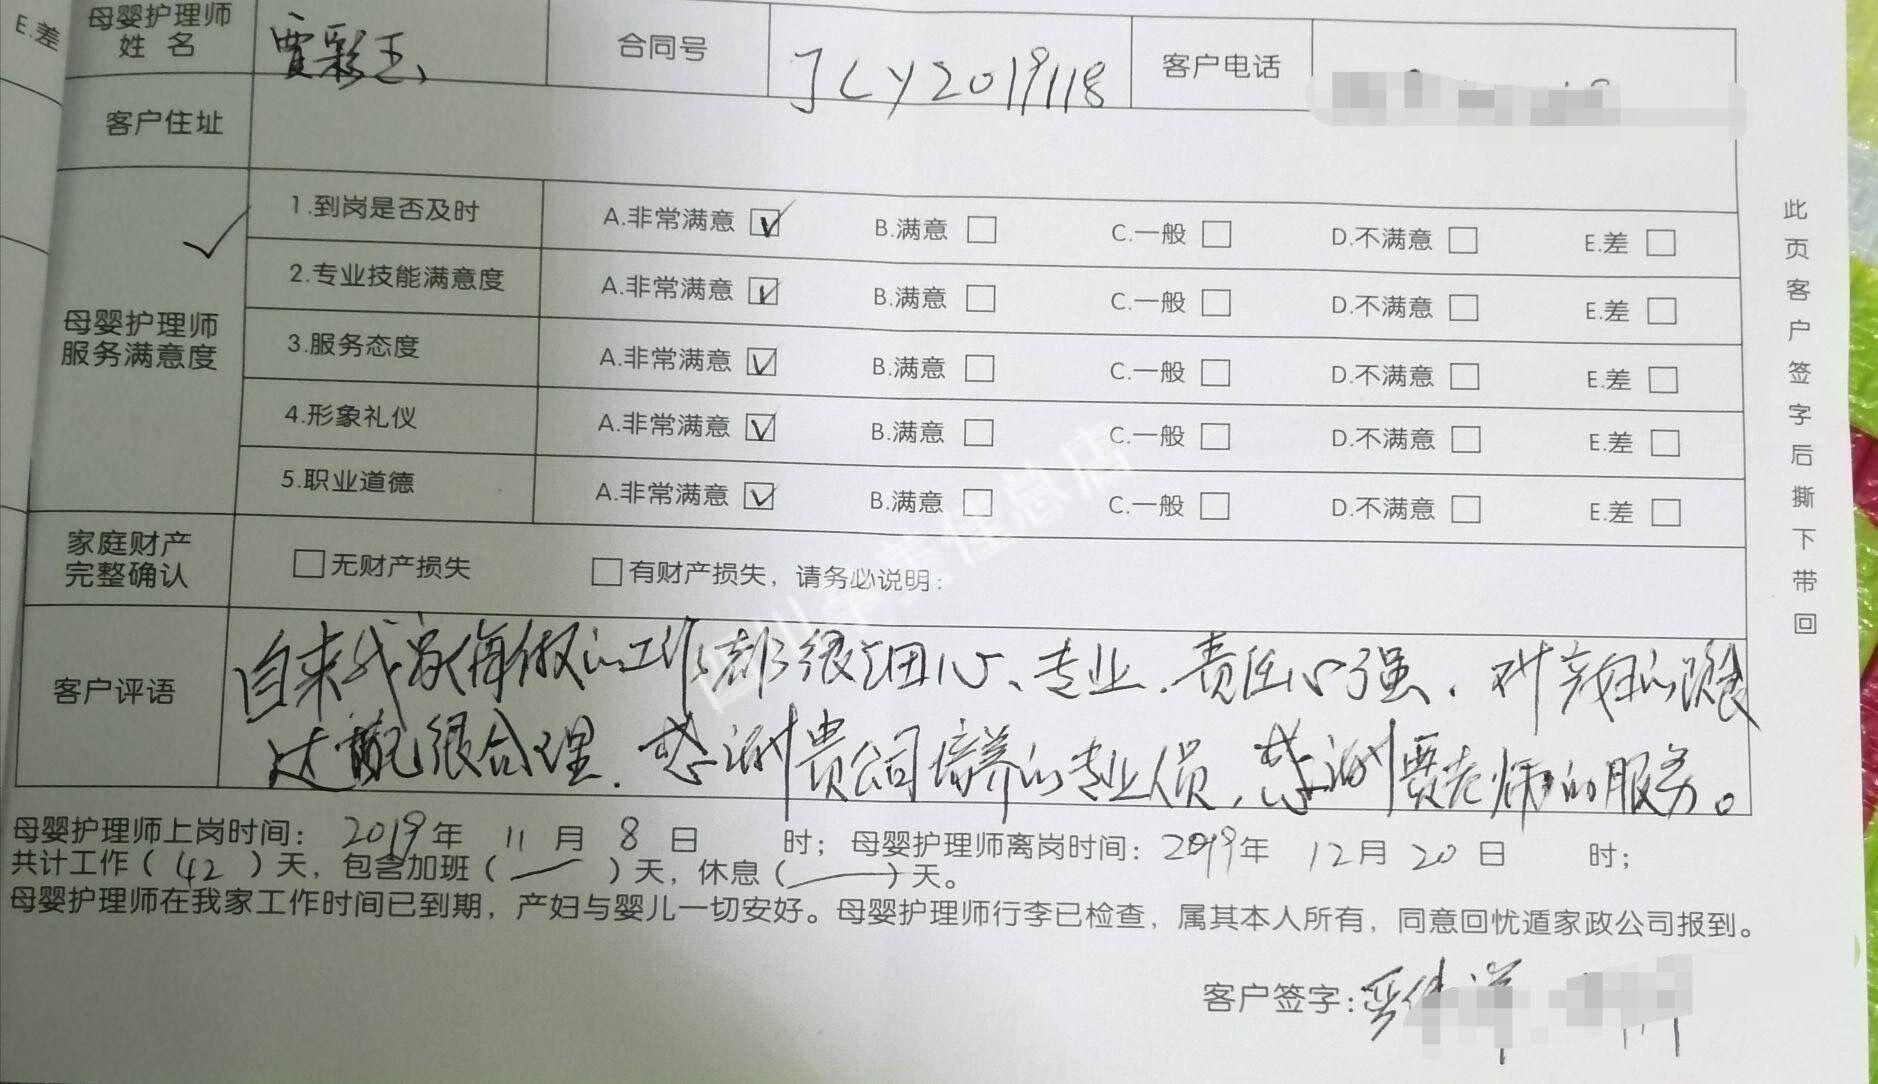 E.差
母婴护理师
姓 名
贾彩玉
合同号
JCY2019118
客户电话
客户住址
母婴护理师
服务满意度
1.到岗是否及时 A.非常满意 ☑ B.满意 □ C.一般 □ D.不满意 □ E.差 □
2.专业技能满意度 A.非常满意 ☑ B.满意 □ C.一般 □ D.不满意 □ E.差 □
3.服务态度 A.非常满意 ☑ B.满意 □ C.一般 □ D.不满意 □ E.差 □
4.形象礼仪 A.非常满意 ☑ B.满意 □ C.一般 □ D.不满意 □ E.差 □
5.职业道德 A.非常满意 ☑ B.满意 □ C.一般 □ D.不满意 □ E.差 □
家庭财产
完整确认
□无财产损失 □有财产损失，请务必说明：
客户评语
自来我家每做的工作都很细心、专业、责任心强，对产妇的膳食
达配很合理，感谢贵公司培养的专业人员，感谢贾老师的服务。
母婴护理师上岗时间：2019年 11 月 8 日 时；母婴护理师离岗时间：2019年 12月 20 日 时；
共计工作（42）天，包含加班（一）天，休息（一）天。
母婴护理师在我家工作时间已到期，产妇与婴儿一切安好。母婴护理师行李已检查，属其本人所有，同意回忧遁家政公司报到。
客户签字：
此页客户签字后撕下带回